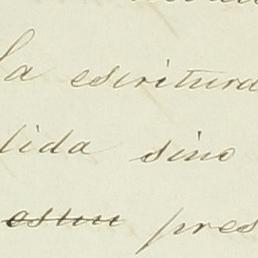 La escritura
lida sino
pres